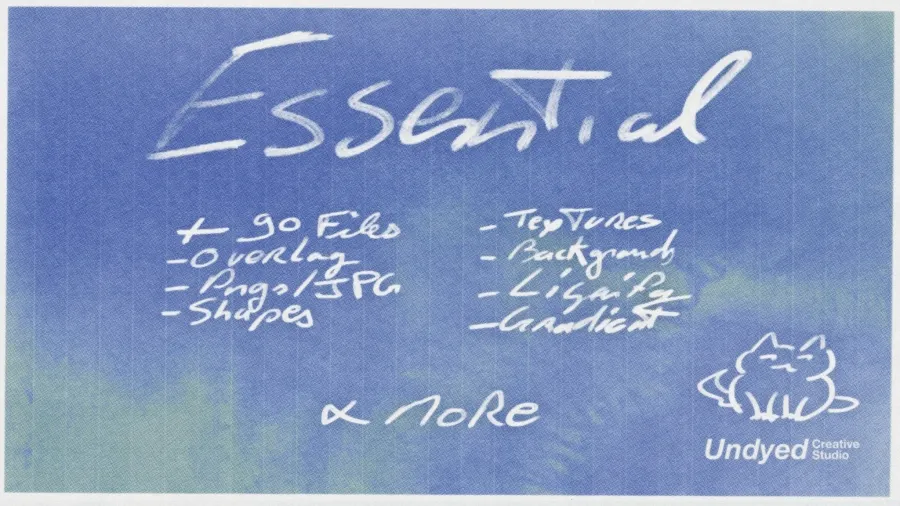 Essential
+ 90 Files
- Overlay
- Pngs/JPG
- Shapes
- Textures
- Backgrounds
- Liquify
- Gradient
& more
Undyed Creative Studio